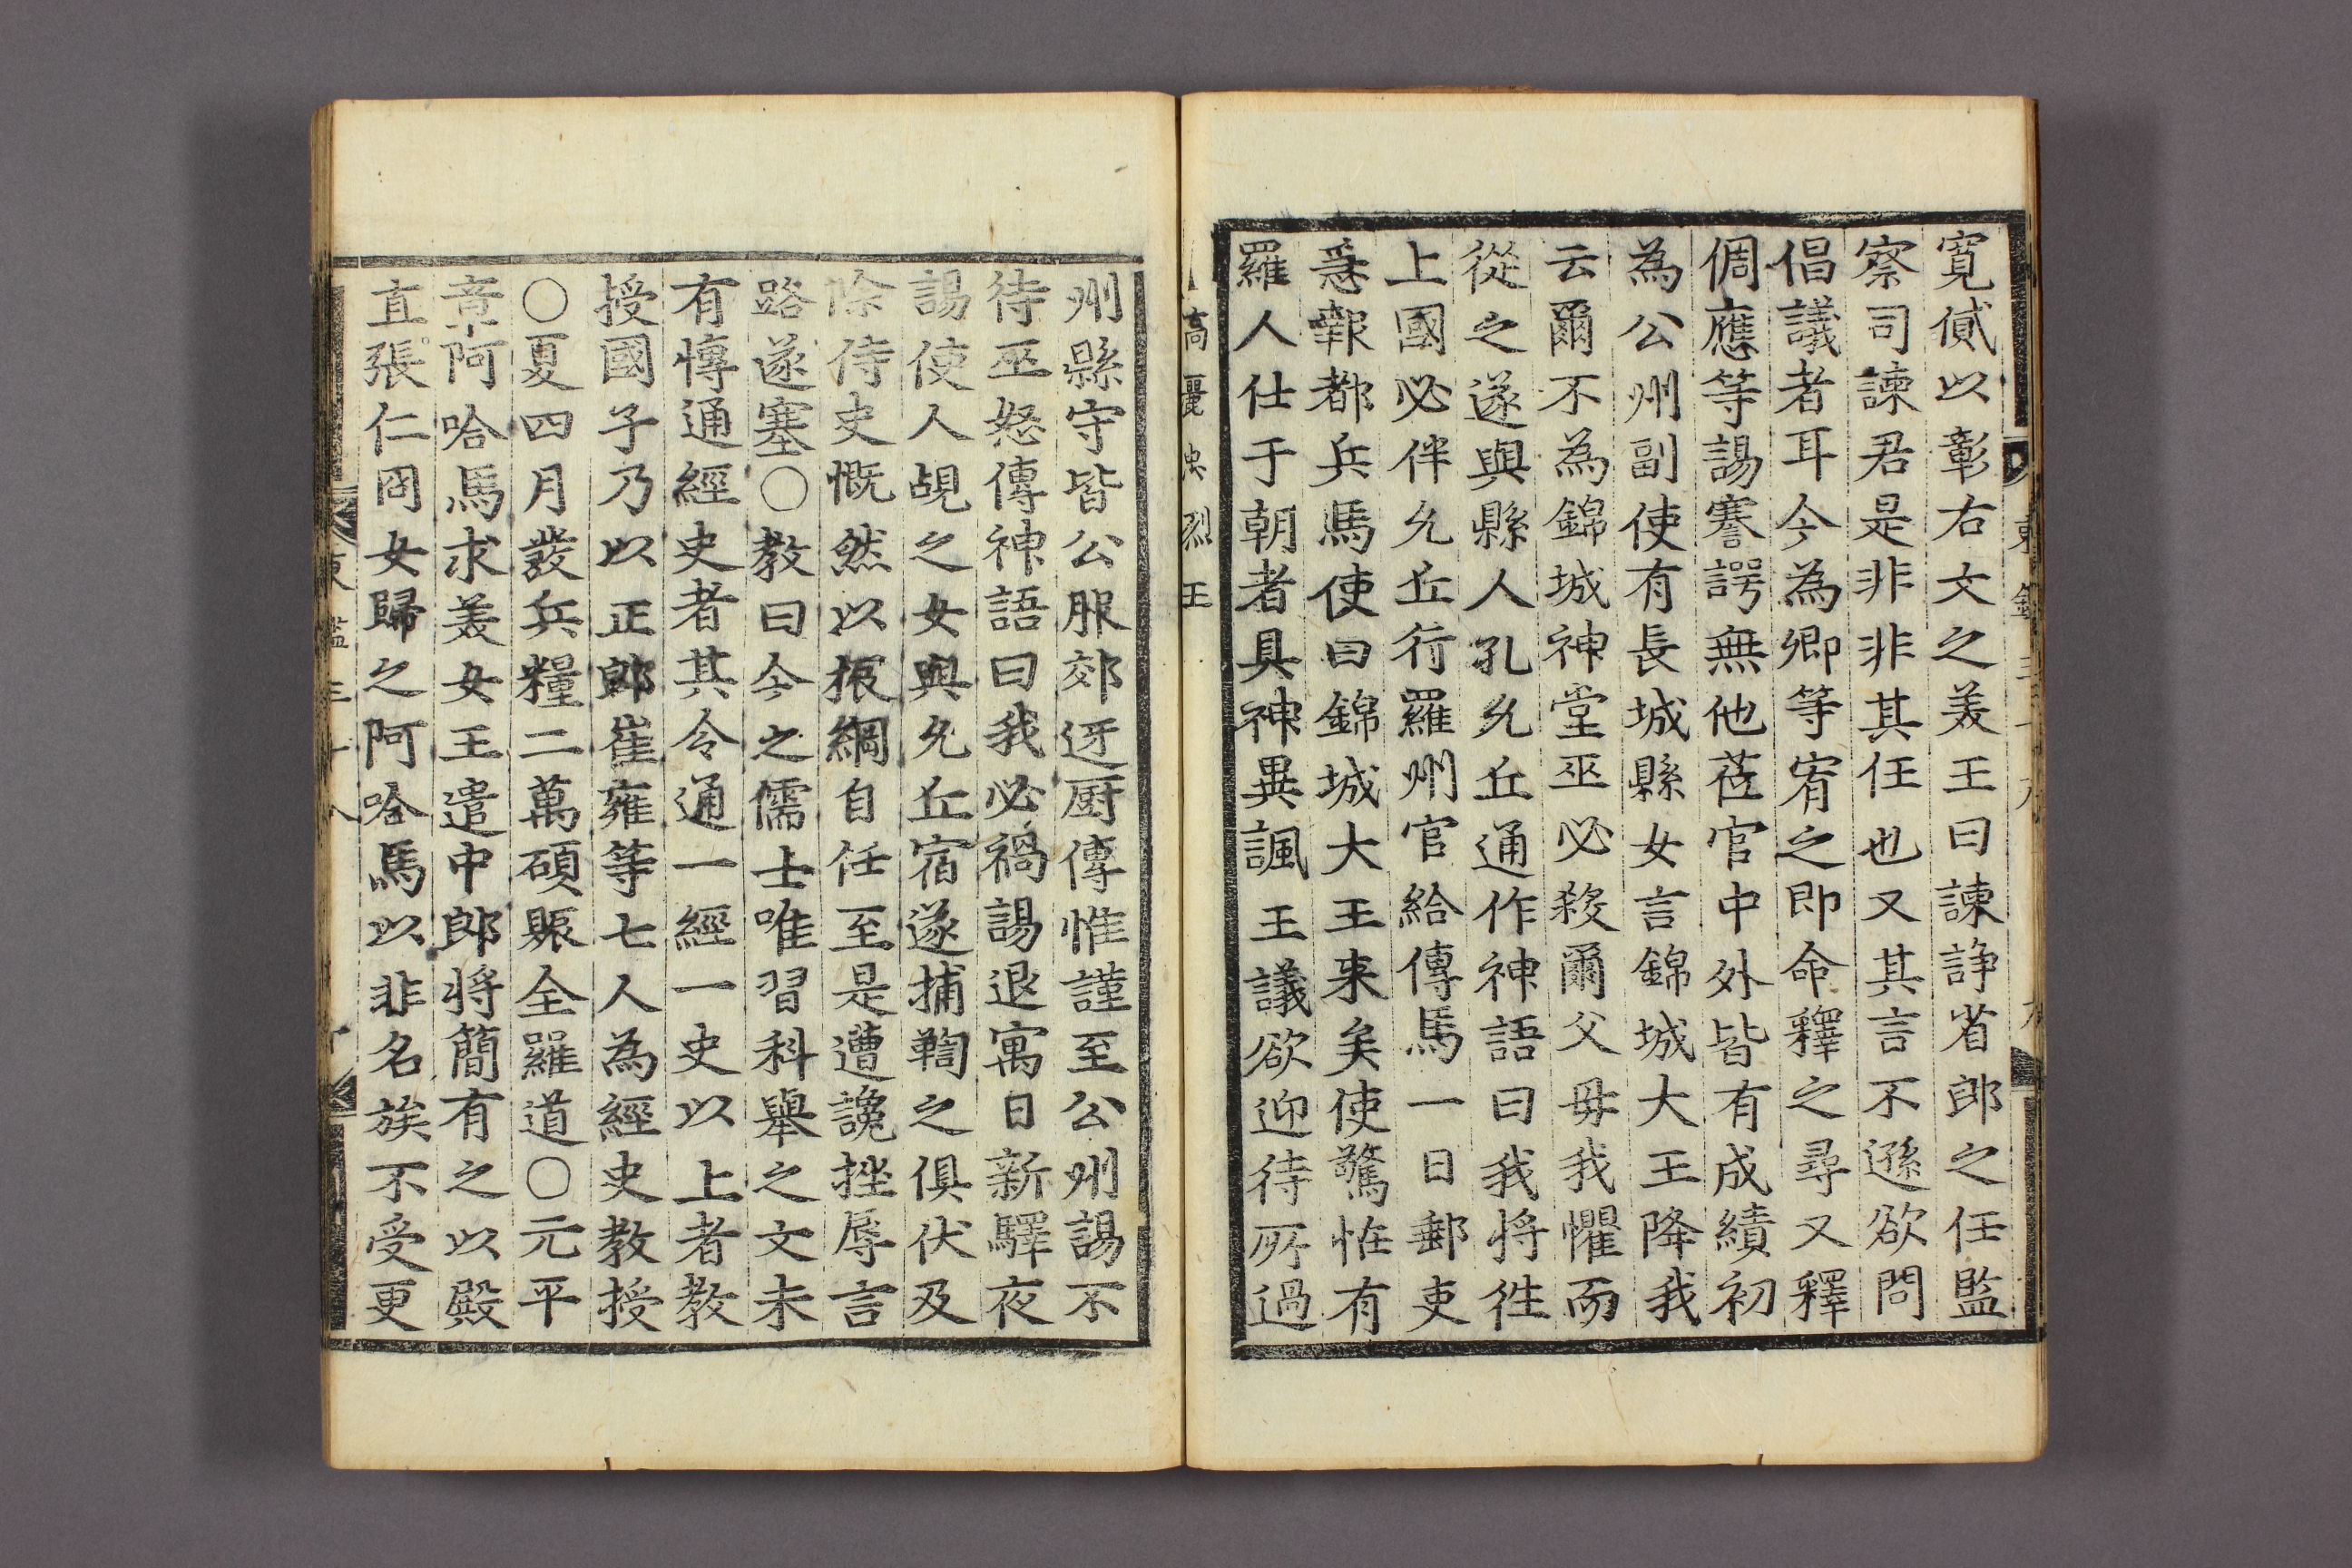 寛貸以彰右文之美王曰諫諍省郎之任監
察司諫君是非非其任也又其言不遜欲問
倡議者耳今為卿等宥之即命釋之尋又釋
倜應等諹謇諤無他莅官中外皆有成績初
為公州副使有長城縣女言錦城大王降我
云爾不為錦城神堂巫必殺爾父母我懼而
從之遂與縣人孔允丘通作神語曰我將徃
上國必伴允丘行羅州官給傳馬一日郵吏
急報都兵馬使曰錦城大王来矣使驚恠有
羅人仕于朝者具神異諷王議欲迎待所過
高麗忠烈王
州縣守皆公服郊迓厨傳惟謹至公州諹不
待巫怒傳神語曰我必禍諹退寓日新驛夜
諹使人覘之女與允丘宿遂捕鞫之俱伏及
除侍史慨然以振綱自任至是遭讒挫辱言
路遂塞○教曰今之儒士唯習科舉之文未
有慱通經史者其令通一經一史以上者教
授國子乃以正郎崔雍等七人為經史教授
○夏四月發兵糧二萬碩賑全羅道○元平
章阿哈馬求美女王遣中郎將簡有之以殿
直張仁冏女歸之阿哈馬以非名族不受更
東鑑三十八